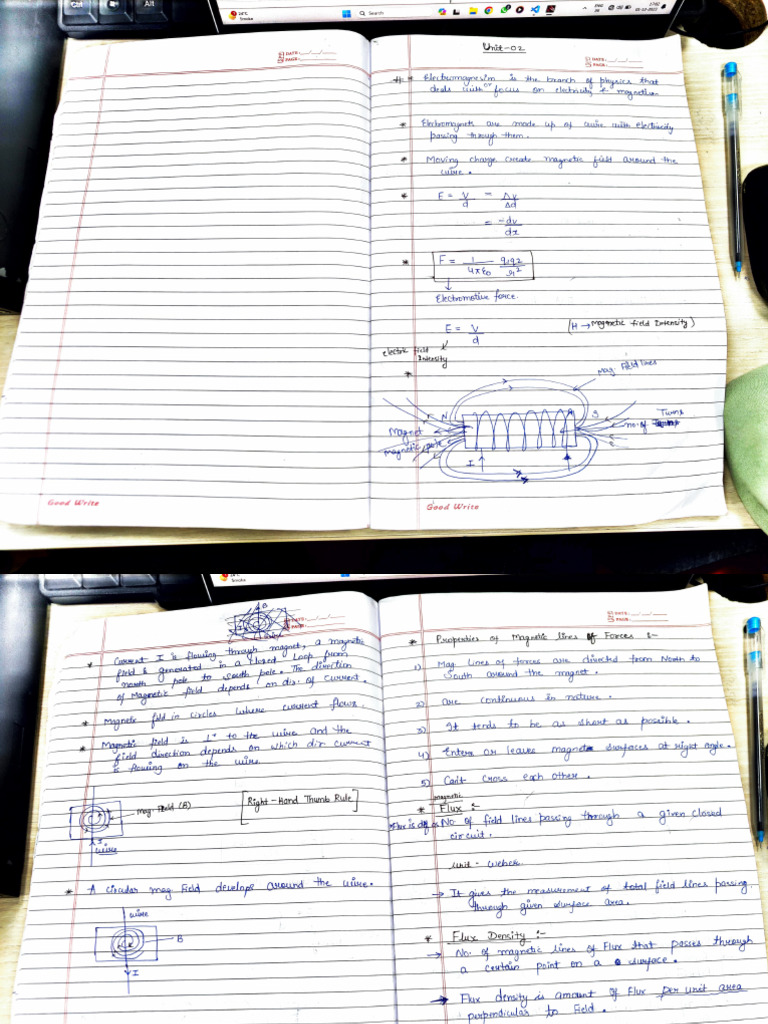 Ctrl
Alt
24°C
Smoke
Search
ENG
17:02
05-12-2023
DATE: __/__/__
PAGE:
Unit-02
DATE: __/__/__
PAGE:
* Electromagnesim is the branch of physics that
deals with or focus on electricity & magnetism
* Electromagnets are made up of wire with electricity
passing through them.
* Moving charge create magnetic field around the
wire.
* E = V/d = Δv/Δd
= -dv/dx
* F = 1/4πε0 q1q2/r²
Electromotive force.
E = V/d (H → Magnetic field Intensity)
electric field
Intensity
*
Mag. Field lines
N
S
Magnet
magnetic pole
Turns
no. of
I
Good Write
Good Write
24°C
Smoke
B
DATE: __/__/__
PAGE:
* Current I is flowing through magnet, a magnetic
field is generated in a closed loop from
north pole to south pole. The direction
of Magnetic field depends on dir. of current.
* Magnetic fild in circles where current flows.
* Magnetic field is ⊥ʳ to the wire and the
field direction depends on which dirⁿ current
is flowing on the wire.
mag. Field (B)
[Right-Hand Thumb Rule]
I
wire
* A circular mag. Field develops around the wire.
wire
B
I
DATE: __/__/__
PAGE:
* Properties of Magnetic lines of Forces :-
1) Mag. lines of forces are directed from North to
South around the magnet.
2) are continuous in nature.
3) It tends to be as short as possible.
4) Enters or leave magnet surfaces at right angle.
5) Can't cross each other.
magnetic
* Flux :-
Flux is def as No of field lines passing through a given closed
circuit.
unit - weber.
→ It gives the measurement of total field lines passing
through given surface area.
* Flux Density :-
→ No. of magnetic lines of Flux that passes through
a certain point on a surface.
→ Flux density is amount of Flux per unit area
perpendicular to Field.